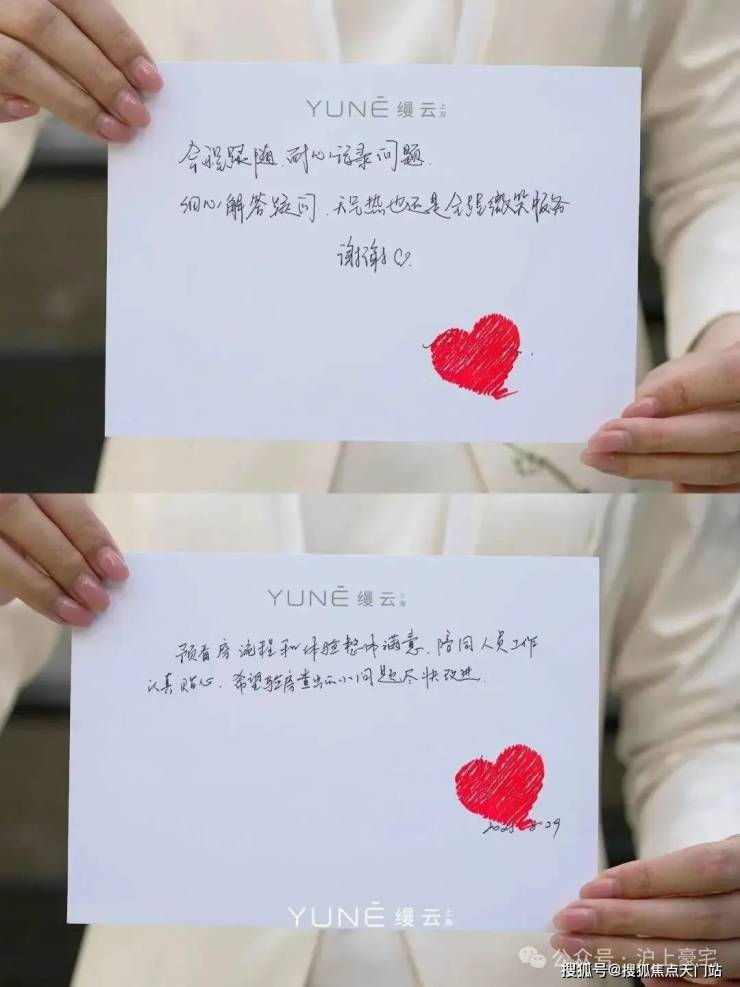 YUNE 缦云 上海
全程跟随、耐心记录问题.
细心解答疑问、天气热也还是全程微笑服务
谢谢♡.
YUNE 缦云 上海
预看房流程和体验整体满意、陪同人员工作
认真贴心、希望验房查出的小问题尽快改进.
8-29
YUNE 缦云 上海
公众号·沪上豪宅
搜狐号@搜狐焦点天门站